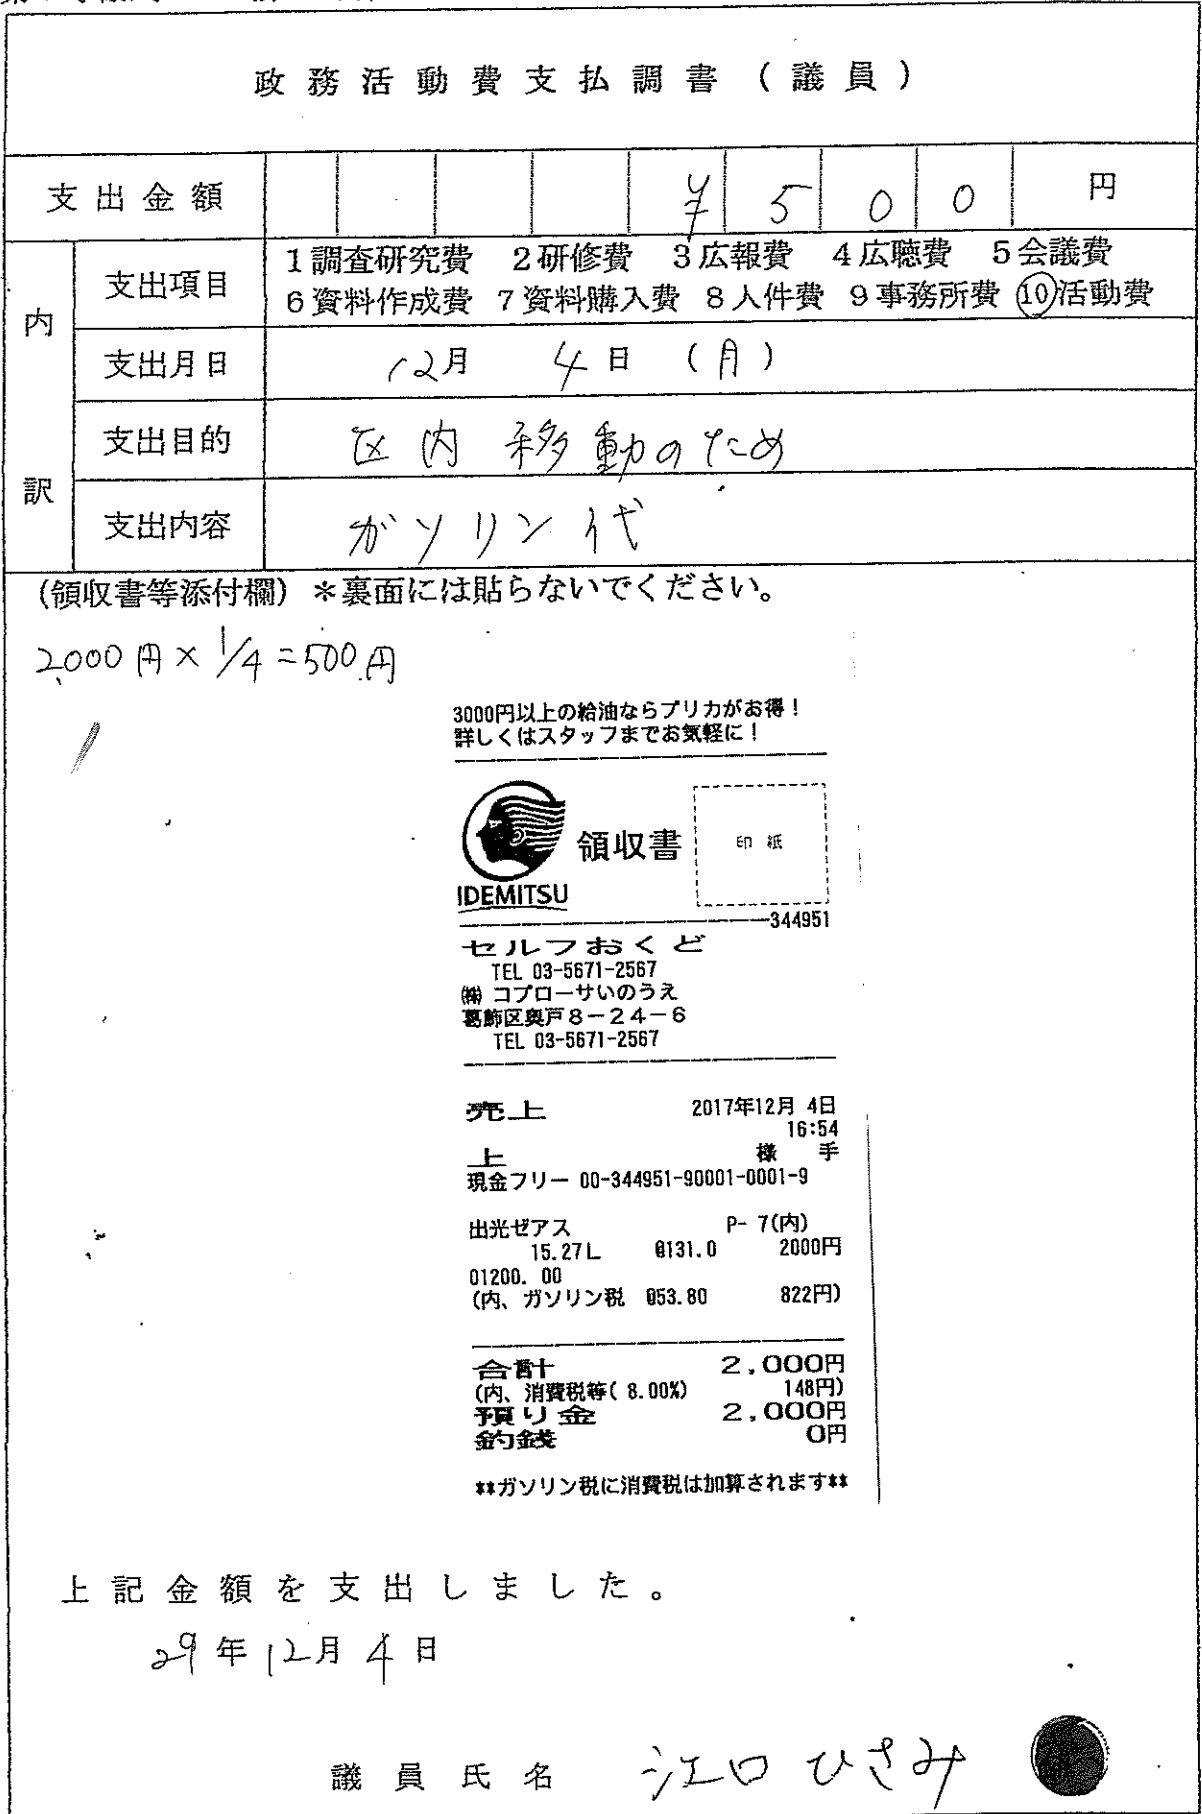 政務活動費支払調書（議員）
支出金額 ¥ 5 0 0 円
内訳
支出項目 1調査研究費 2研修費 3広報費 4広聴費 5会議費
6資料作成費 7資料購入費 8人件費 9事務所費 ⑩活動費
支出月日 12月 4日 （月）
支出目的 区内移動のため
支出内容 ガソリン代
（領収書等添付欄）＊裏面には貼らないでください。
2,000円×1/4=500円
3000円以上の給油ならプリカがお得！
詳しくはスタッフまでお気軽に！
IDEMITSU
領収書
印紙
344951
セルフおくど
TEL 03-5671-2567
㈱ コプローサいのうえ
葛飾区奥戸8－24－6
TEL 03-5671-2567
売上 2017年12月 4日
16:54
上 様 手
現金フリー 00-344951-90001-0001-9
出光ゼアス P- 7(内)
15.27L @131.0 2000円
01200. 00
(内、ガソリン税 @53.80 822円)
合計 2,000円
(内、消費税等( 8.00%) 148円)
預り金 2,000円
釣銭 0円
**ガソリン税に消費税は加算されます**
上記金額を支出しました。
29年12月4日
議員氏名 江口ひさみ